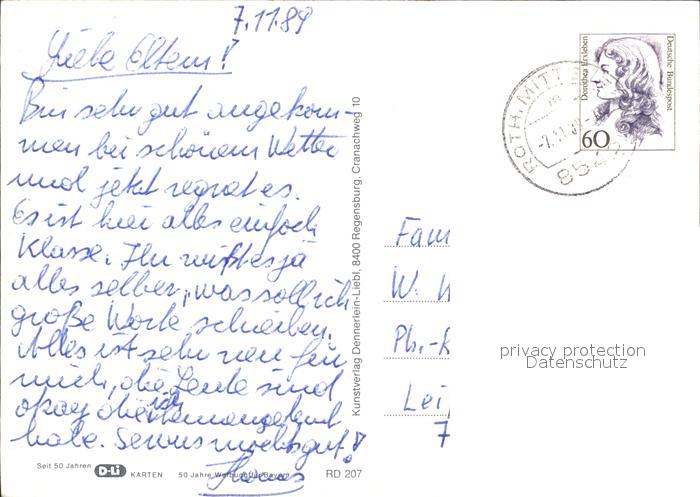 7.11.89
Liebe Eltern!
Bin sehr gut angekom-
men bei schönem Wetter
und jetzt regnet es.
Es ist hier alles einfach
Klasse. Ihr wißt es ja
alles selber, was soll ich
große Worte schreiben.
Alles ist sehr neu für
mich, die Leute sind
okay die ich kennengelernt
habe. Servus machts gut!
Thomas
Seit 50 Jahren D-Li KARTEN 50 Jahre Werbung für Bayern RD 207
Kunstverlag Dennerlein-Liebl, 8400 Regensburg, Cranachweg 10
Deutsche Bundespost
Dorothea Erxleben
60
ROTH, MITT
-7.11.89
854
Fam
W.
Ph.-
Lei
7
privacy protection
Datenschutz